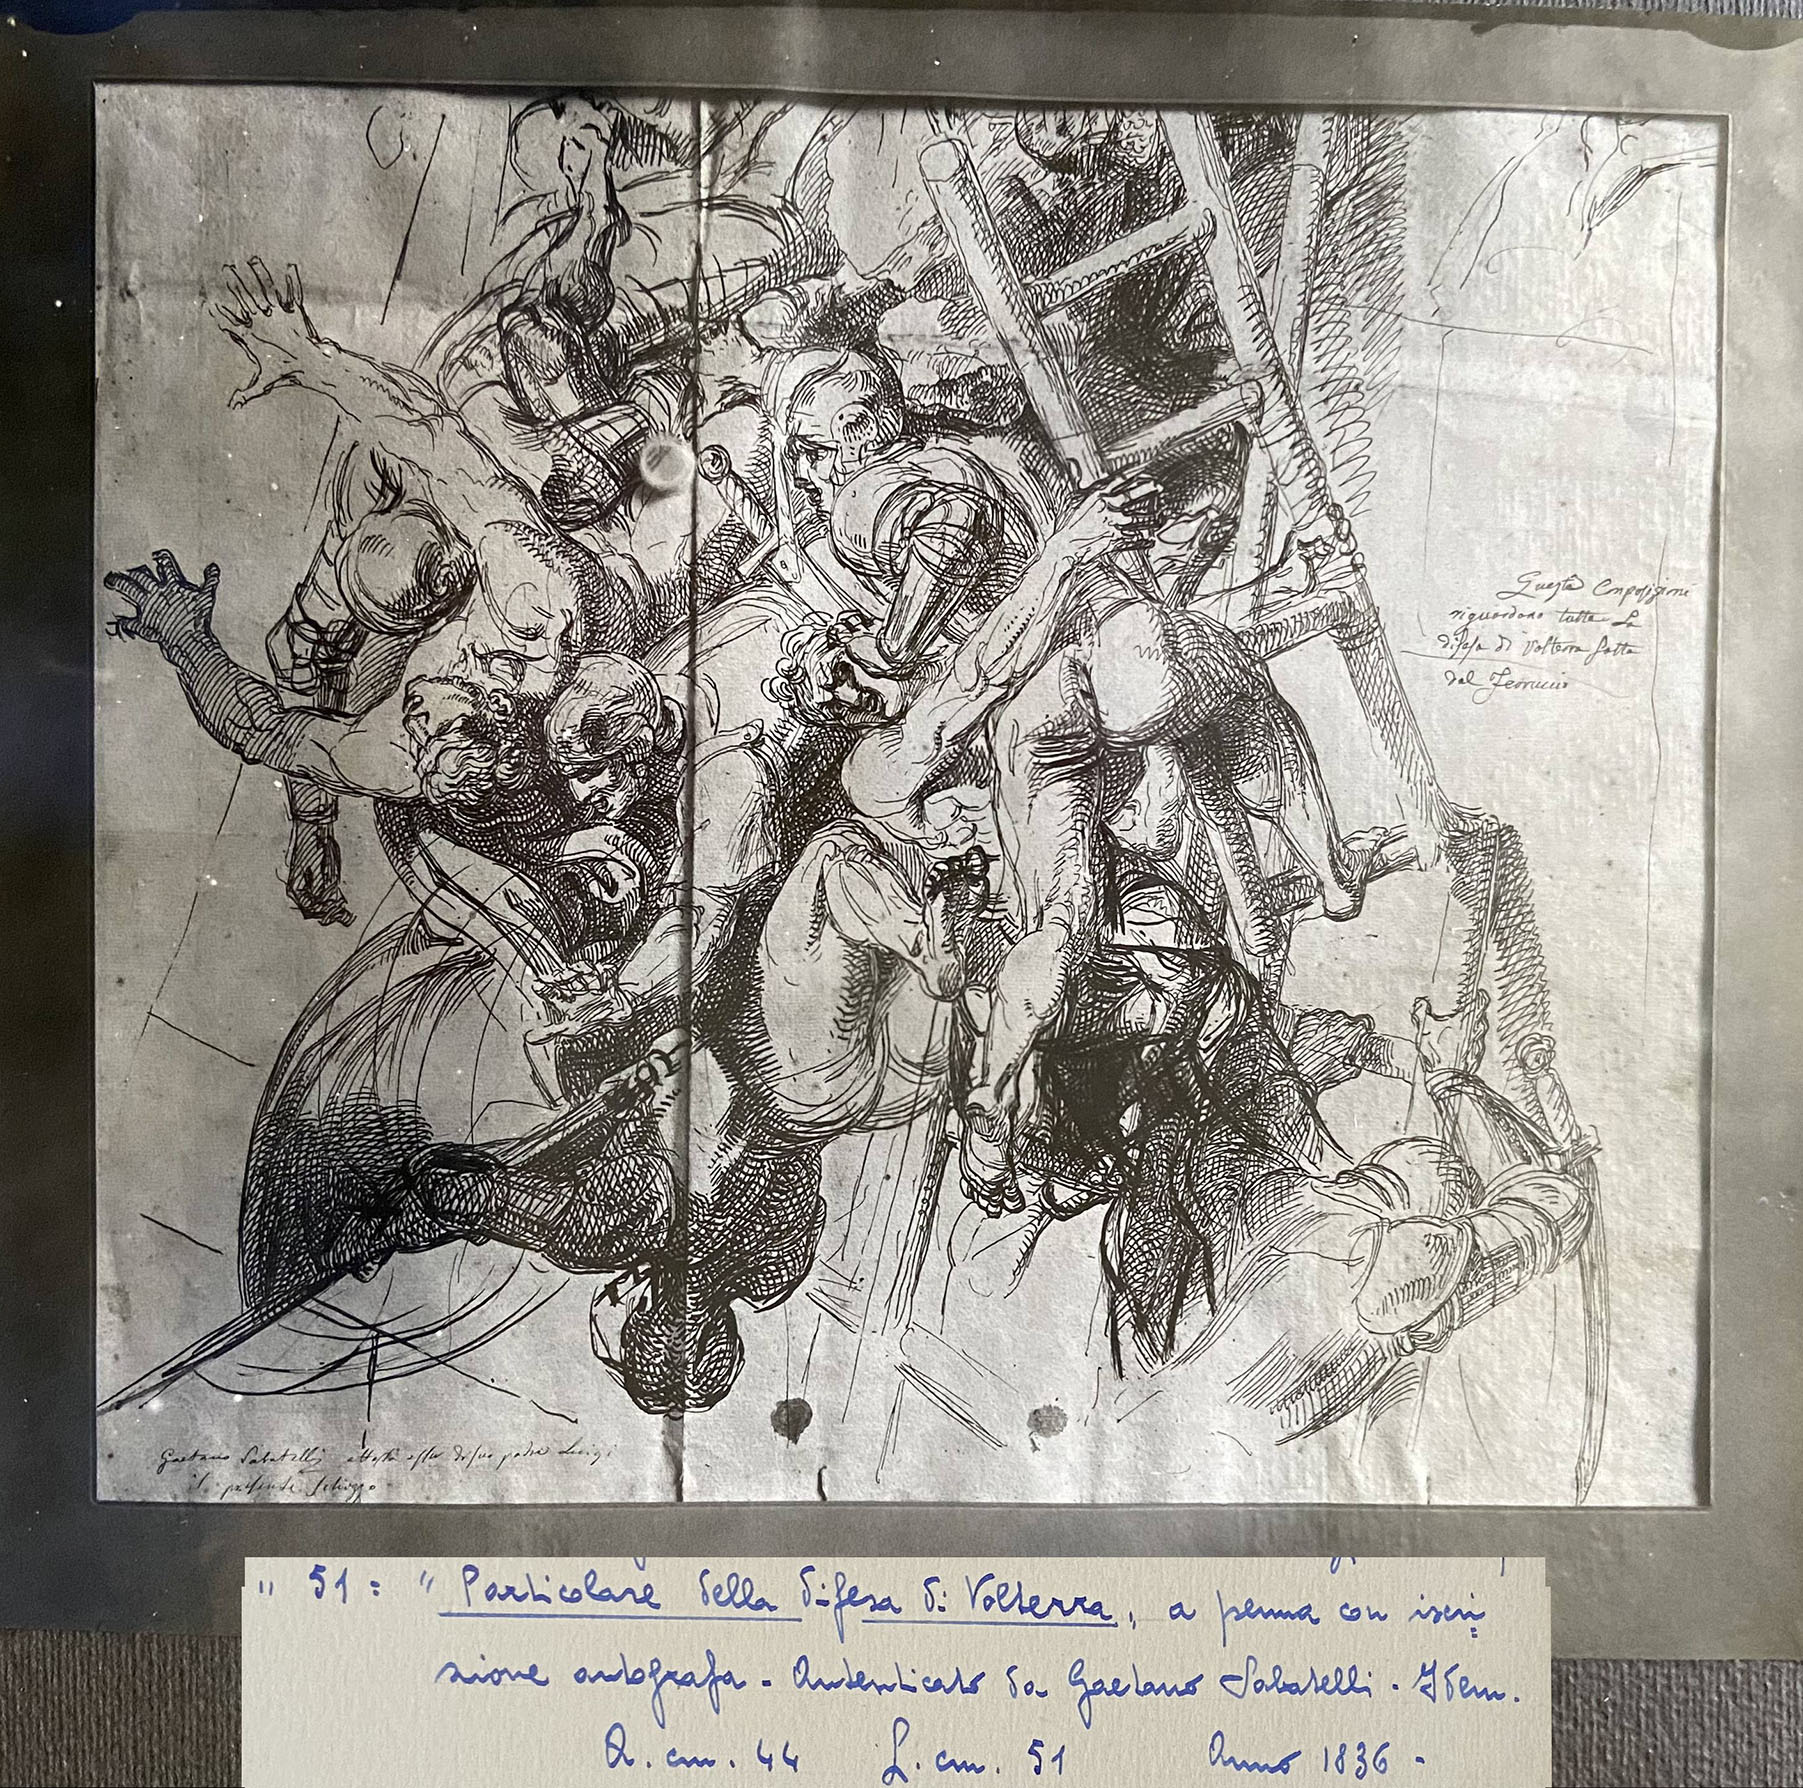 Questa Composizione
riguardano tutte la
difesa di Volterra fatta
dal Ferruccio
Gaetano Sabatelli attesta esser di suo padre Luigi
il presente schizzo
" 51 = " Particolare della difesa di Volterra, a penna con iscri=
zione autografa - Autenticato da Gaetano Sabatelli - Idem.
A. cm. 44 L. cm. 51 Anno 1836 -